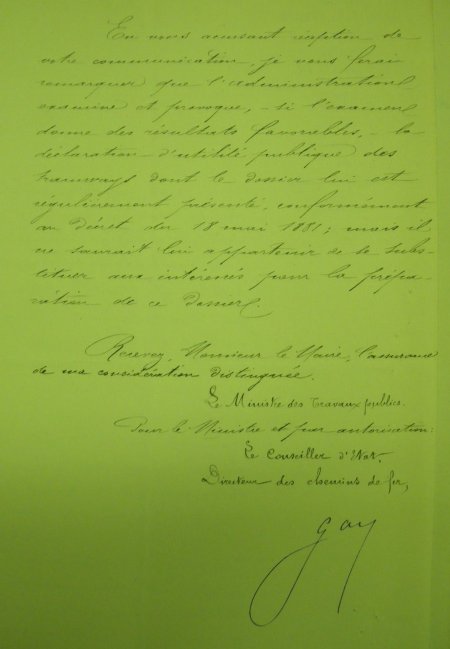 En vous accusant réception de
votre communication, je vous ferai
remarquer que l'administration
examine et provoque, - si l'examen
donne des résultats favorables, - la
déclaration d'utilité publique des
tramways dont le dossier lui est
régulièrement présenté, conformément
au Décret du 18 mai 1881; mais il
ne saurait lui appartenir de se subs-
tituer aux intéressés pour la prépa-
ration de ce dossier.
Recevez, Monsieur le Maire, l'assurance
de ma considération distinguée.
Le Ministre des Travaux publics.
Pour le Ministre et par autorisation:
Le Conseiller d'Etat.
Directeur des chemins de fer,
Gay